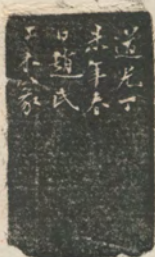 道光丁
未年春
日趙氏